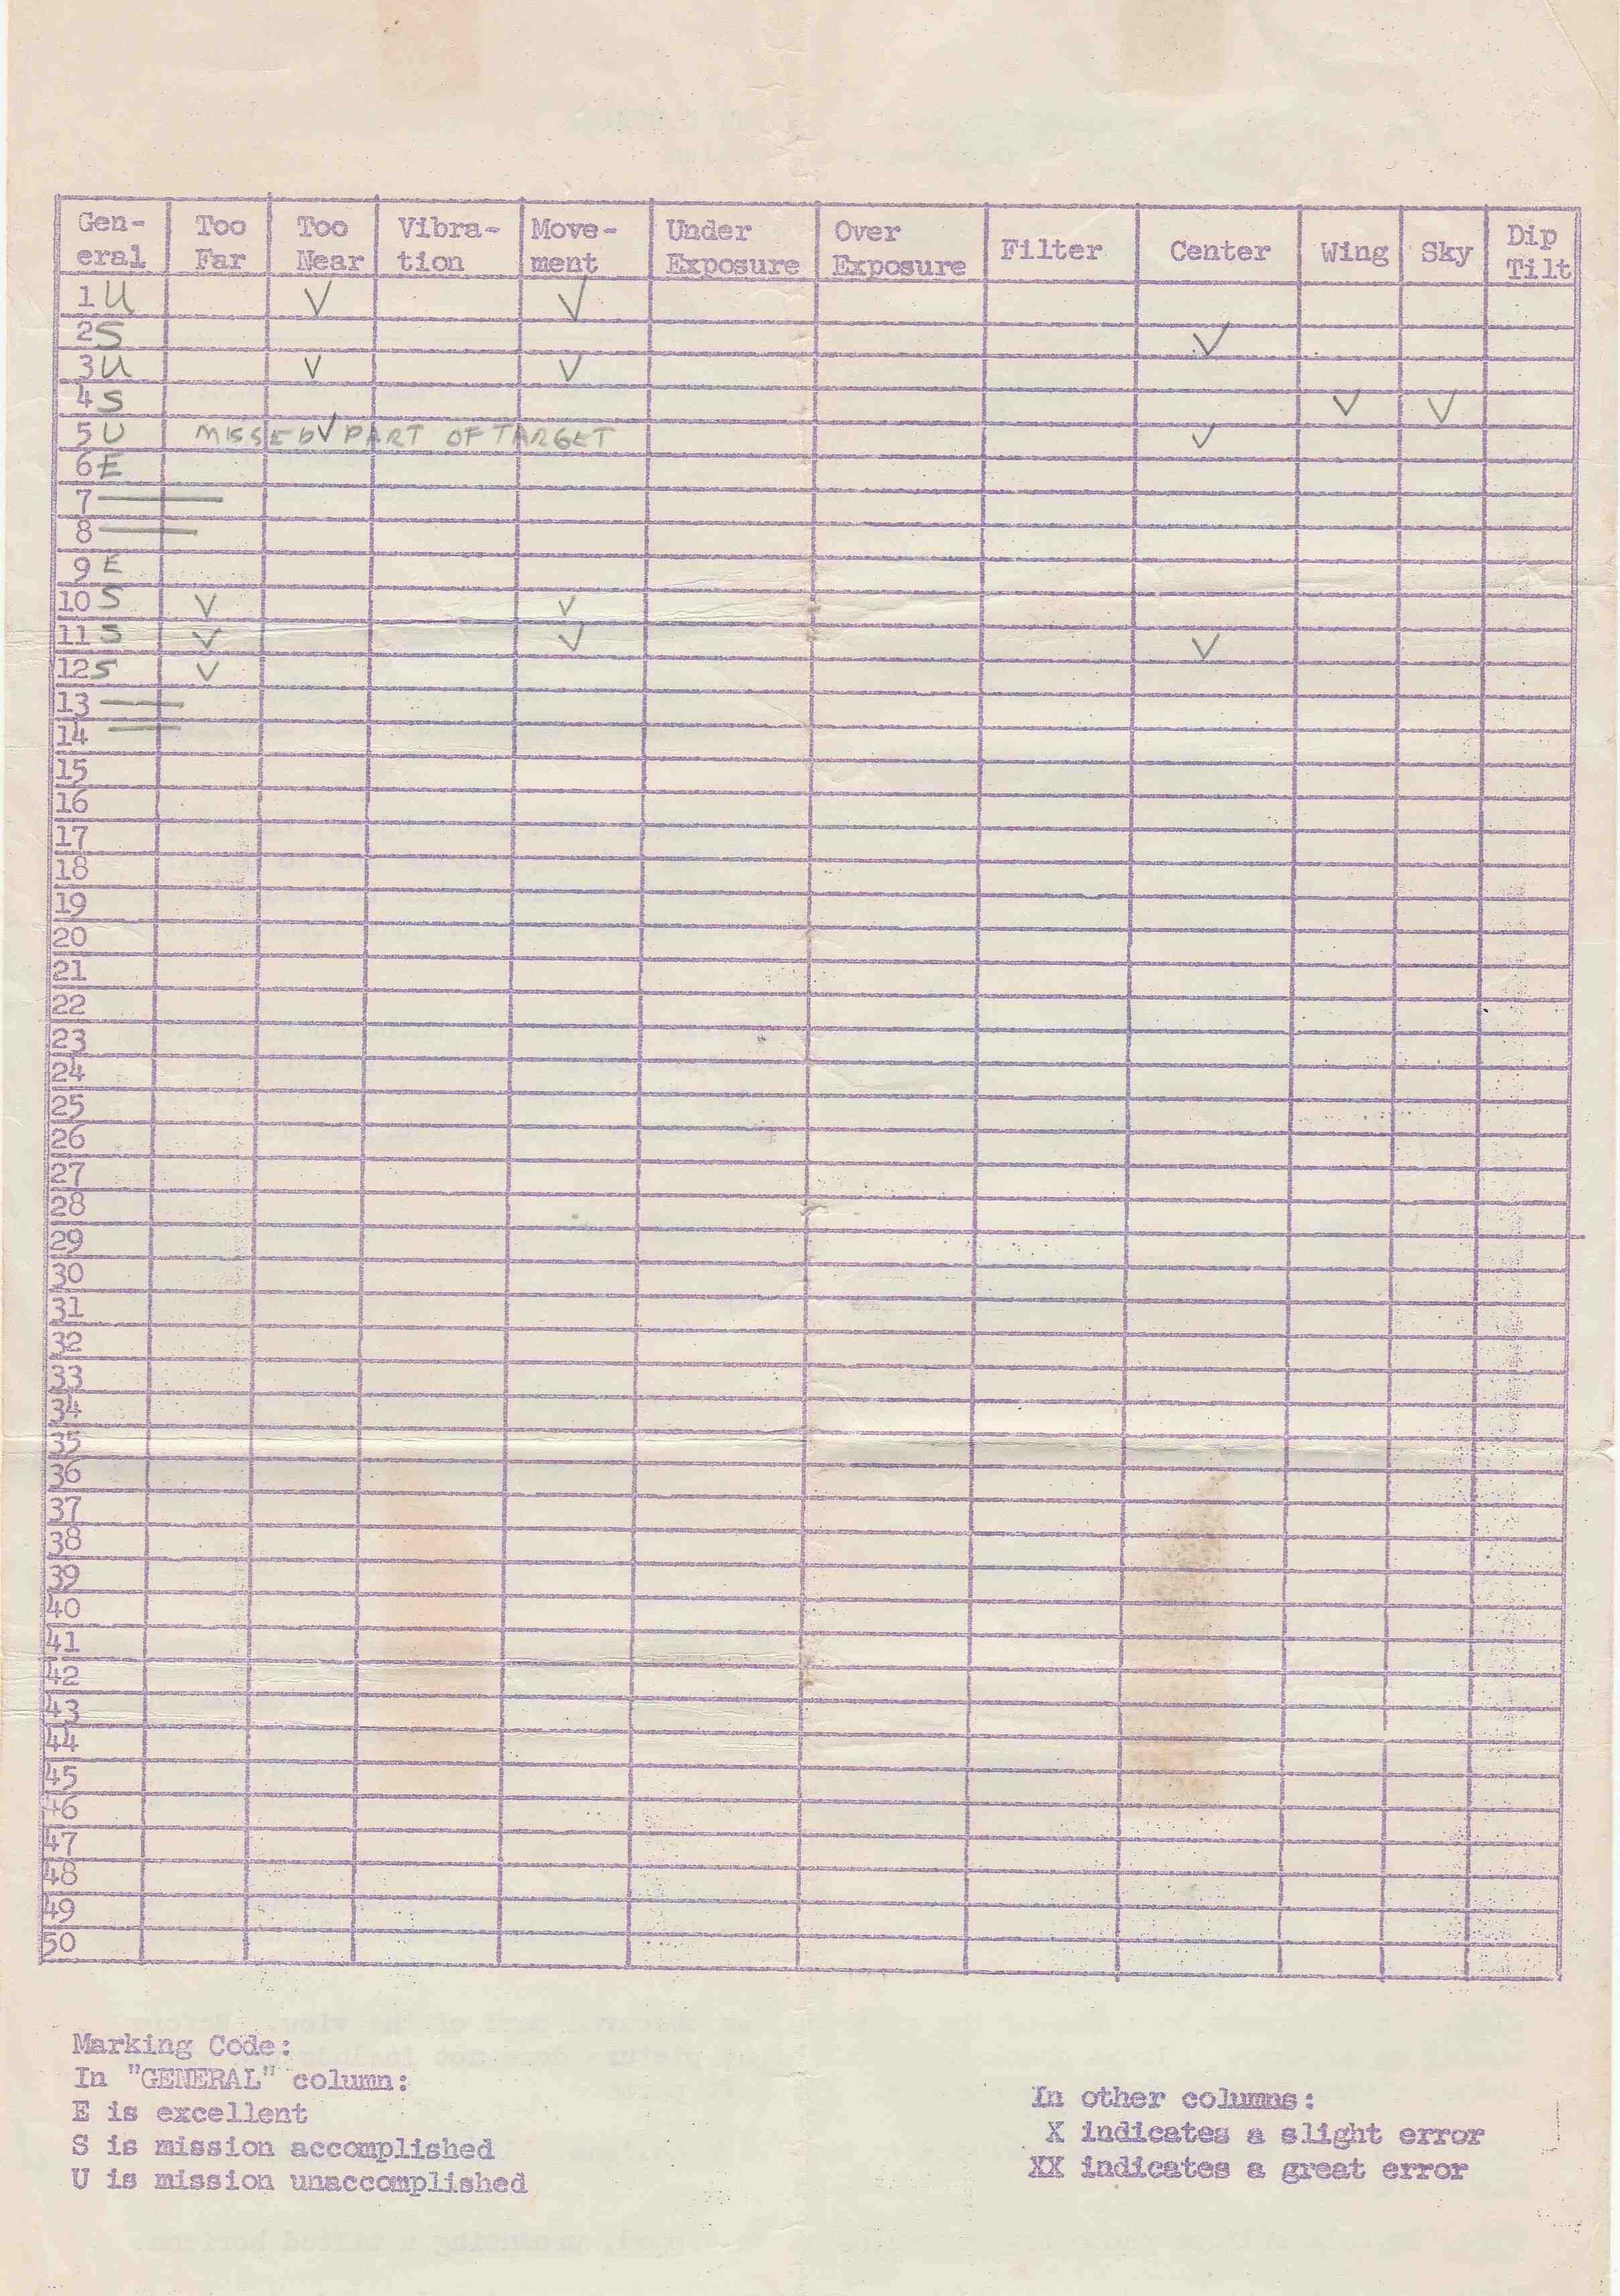 Gen- Too Too Vibra- Move- Under Over Filter Center Wing Sky Dip
eral Far Near tion ment Exposure Exposure Tilt
1 U √ √
2 S √
3 U √ √
4 S √ √
5 U MISSED √ PART OF TARGET √
6 E
7 —
8 —
9 E
10 S √ √
11 S √ √ √
12 S √
13 —
14 —
15
16
17
18
19
20
21
22
23
24
25
26
27
28
29
30
31
32
33
34
35
36
37
38
39
40
41
42
43
44
45
46
47
48
49
50
Marking Code:
In "GENERAL" column:
E is excellent
S is mission accomplished
U is mission unaccomplished
In other columns:
X indicates a slight error
XX indicates a great error